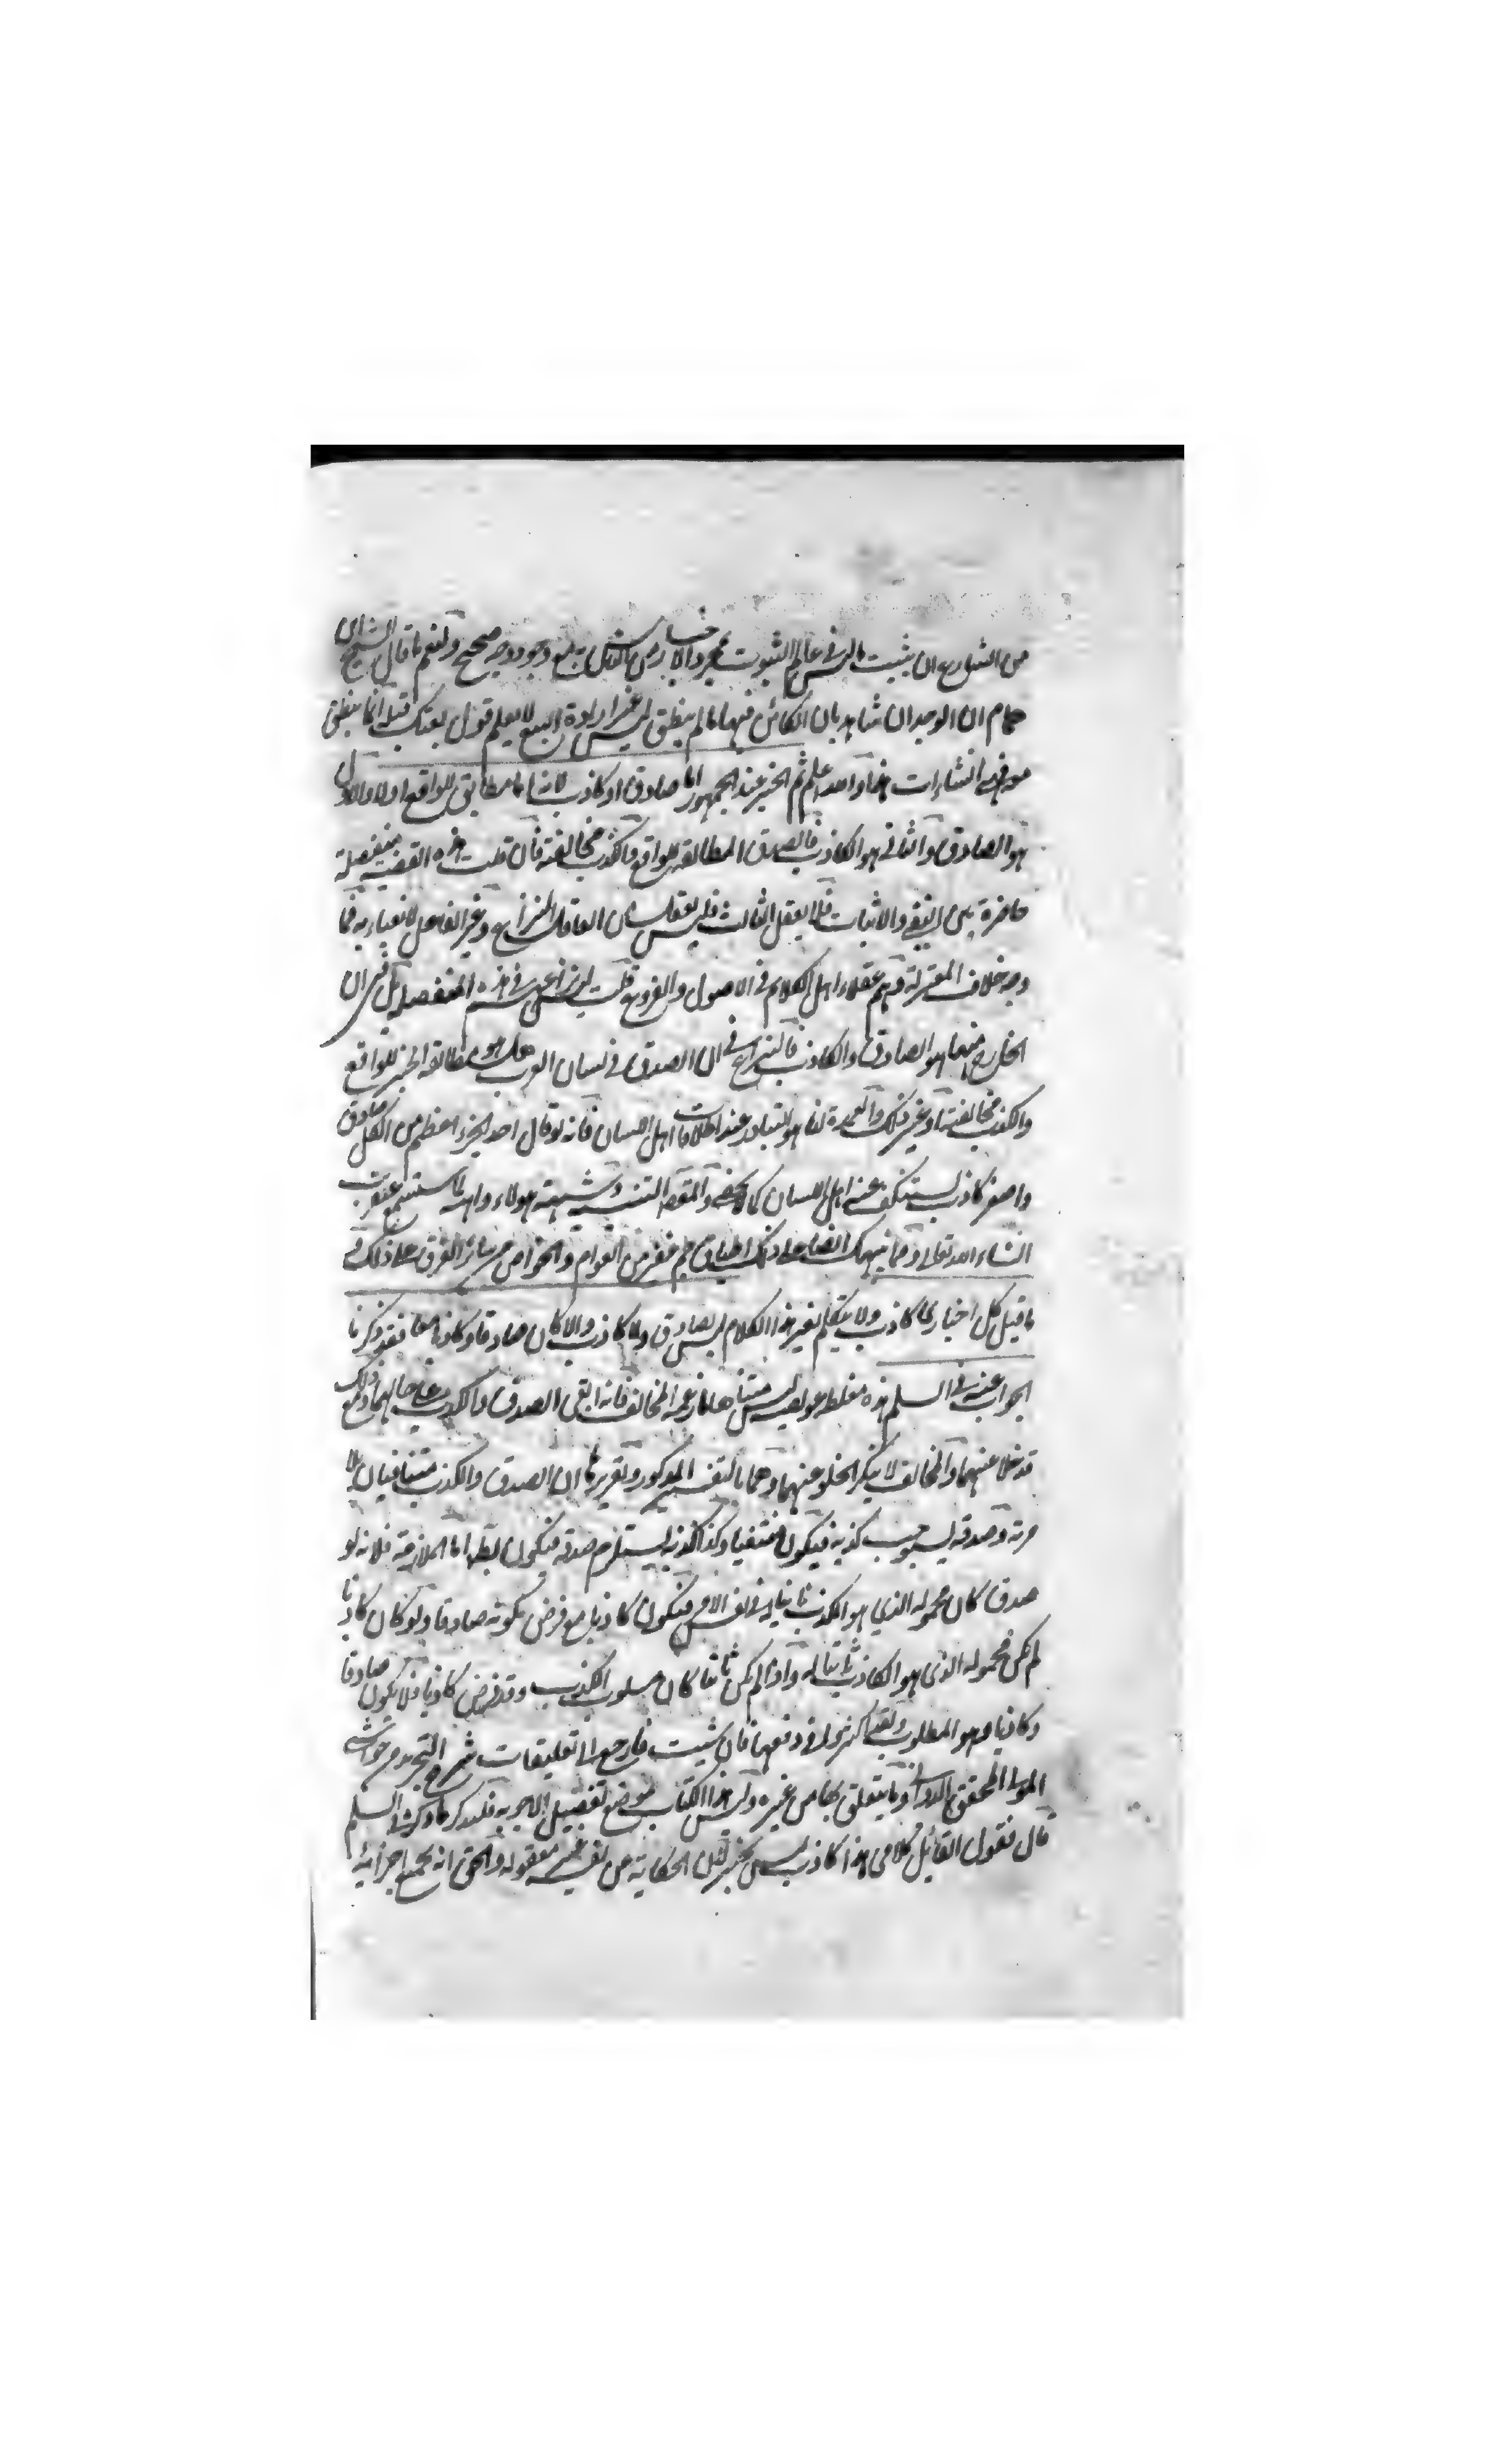 من الشارع ان يثبت ما ليس في عالم الثبوت بمجرد الاخبار من وجود وجه صحيح ولنعم ما قال الشيخ ابن
همام ان الوجدان شاهد بان الكائن فيها ما لم ينطق ليس غير ارادة البيع لا يعلم قول بعتك قبله انما ينطق
انشاءات هذا والله اعلم ثم الخبر عند الجمهور اما صادق او كاذب لانه اما مطابق للواقع او لا والاول
هو الصادق والثاني هو الكاذب فالصدق المطابقة للواقع والكذب مخالفته فان قلت هذه القضية منفصلة
حاضرة بين النفي والاثبات فلا يعقل الثالث فليس يعقل من العاقل النزاع وغير العاقل لا يعباء به فما
وجه خلاف المعتزلة وهم عقلاء اهل الكلام في الاصول والفروع قلت ليس نزاعهم في هذه المنفصلة بل في ان
الخارج منهما هو الصادق والكاذب فالنزاع في ان الصدق في لسان العرب هل هو مطابقة الخبر للواقع
والكذب مخالفته او غير ذلك والعمدة لنا هو التبادر عند اطلاقات اهل اللسان فانه لو قال احد الجزء اعظم من الكل صادق
واصغر كاذب يستنكف عنه اهل اللسان كما لا يخفى هؤلاء
ان شاء الله تعالى ومما ينبهك ايضا على ذلك اطباق جم غفر من العوام والخواص من سائر الفرق على ذلك
ما قيل كل اخباري كاذب ولا يتكلم بغير هذا الكلام ليس بصادق ولا كاذب والا كان صادقا وكاذبا معا فقد ذكرنا
الجواب عنه في السلم هذه مغلطة عويصة ليس مما زعمه المخالف فانه ابقى الصدق والكذب على حالهما ومع ذلك
قد خلا عنهما والمخالف لا ينكر الخلو عنهما وهما بالتفسير المذكور وتقريرها ان الصدق والكذب متنافيان بلا
مرية وصدقه يستوجب كذبه فيكون منتفيا وكذا كذبه يستلزم صدقه فيكون اما الملازمة فلانه لو
صدق كان محموله الذي هو الكذب ثابتا له في نفس الامر فيكون كاذبا مع فرض كونه صادقا ولو كان كاذبا
لم يكن محموله الذي هو الكاذب ثابتا له واذا لم يكن ثابتا كان مسلوب الكذب وقد فرض كاذبا فلا يكون صادقا
وكاذبا وهو المطلوب في دفعها فان شئت فارجع الى تعليقات شرح التجريد من حواشي
المولى المحقق الدواني وما يتعلق بها من غيره وليس هذا الكتاب موضع تفصيل الاجوبة فلنذكر ما ذكر في السلم
قال فنقول القائل كلامي هذا كاذب ليس بخبر لان الحكاية عن نفسه غير معقولة والحق انه بجميع اجزائه